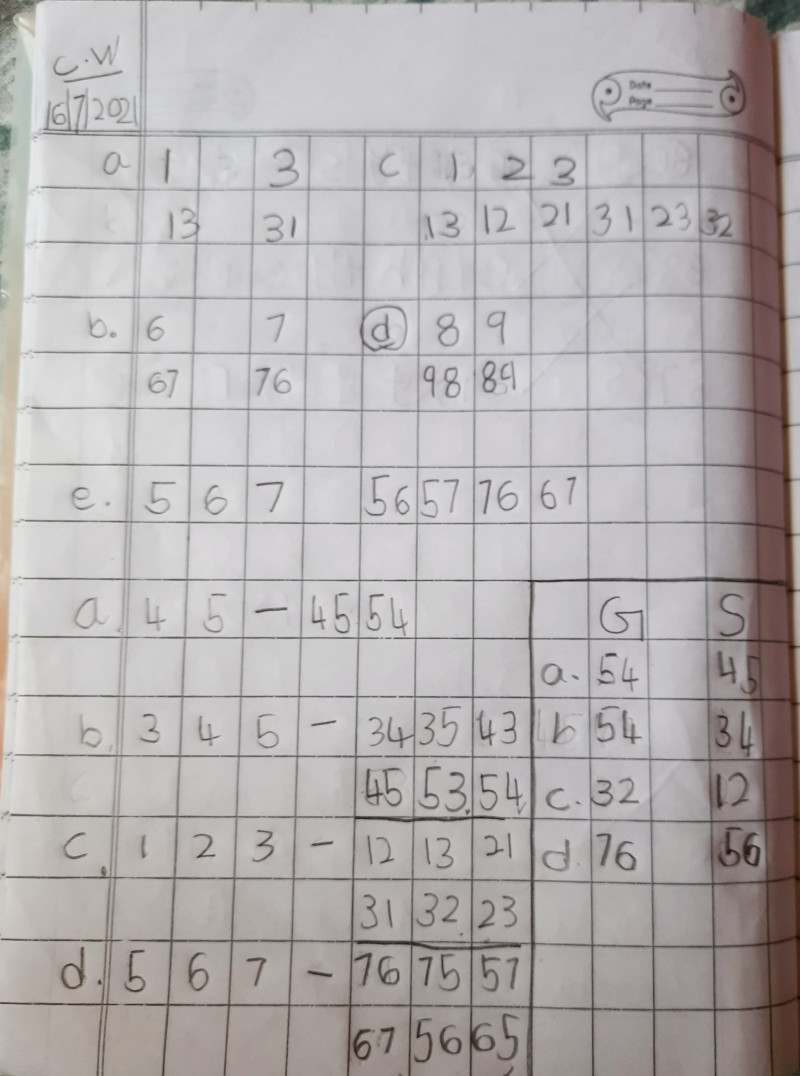 C.W
16/7/2021
Date
Page
a 1 3 c 1 2 3
13 31 13 12 21 31 23 32
b. 6 7 d 8 9
67 76 98 89
e. 5 6 7 56 57 76 67
a. 4 5 – 45 54 G S
a. 54 45
b. 3 4 5 – 34 35 43 b 54 34
45 53 54 c. 32 12
c. 1 2 3 – 12 13 21 d. 76 56
31 32 23
d. 5 6 7 – 76 75 57
67 56 65